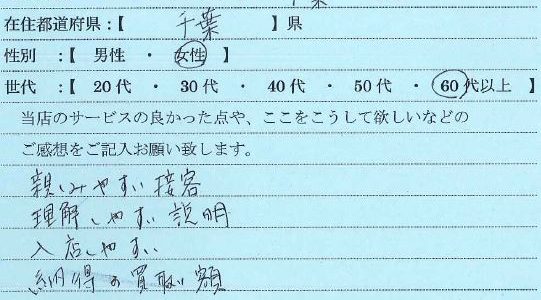 在住都道府県：【 千葉 】県
性別 ：【 男性 ・ 女性 】
世代 ：【 20代 ・ 30代 ・ 40代 ・ 50代 ・ 60代以上 】
当店のサービスの良かった点や、ここをこうして欲しいなどの
ご感想をご記入お願い致します。
親しみやすい接客
理解しやすい説明
入店しやすい
納得の買取り額